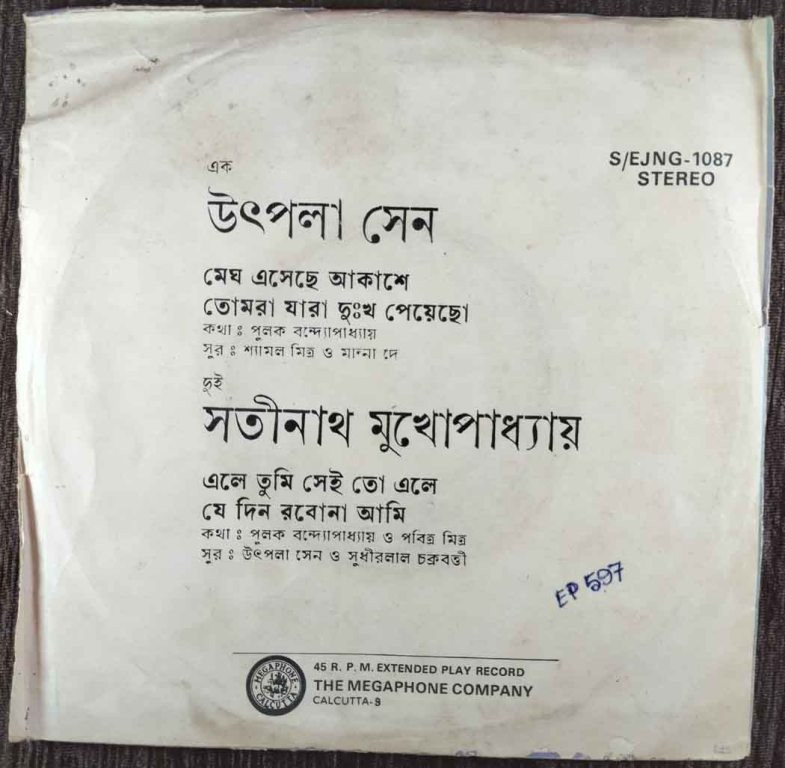 এক
S/EJNG-1087
STEREO
উৎপলা সেন
মেঘ এসেছে আকাশে
তোমরা যারা দুঃখ পেয়েছো
কথা ঃ পুলক বন্দ্যোপাধ্যায়
সুর ঃ শ্যামল মিত্র ও মান্না দে
দুই
সতীনাথ মুখোপাধ্যায়
এলে তুমি সেই তো এলে
যে দিন রবোনা আমি
কথা ঃ পুলক বন্দ্যোপাধ্যায় ও পবিত্র মিত্র
সুর ঃ উৎপলা সেন ও সুধীরলাল চক্রবর্ত্তী
EP 597
MEGAPHONE
CALCUTTA
45 R. P. M. EXTENDED PLAY RECORD
THE MEGAPHONE COMPANY
CALCUTTA-9